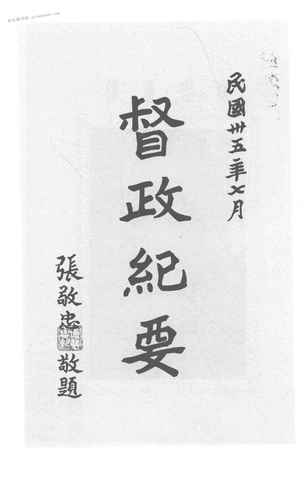 民國卅五年七月
督政紀要
張敬忠敬題